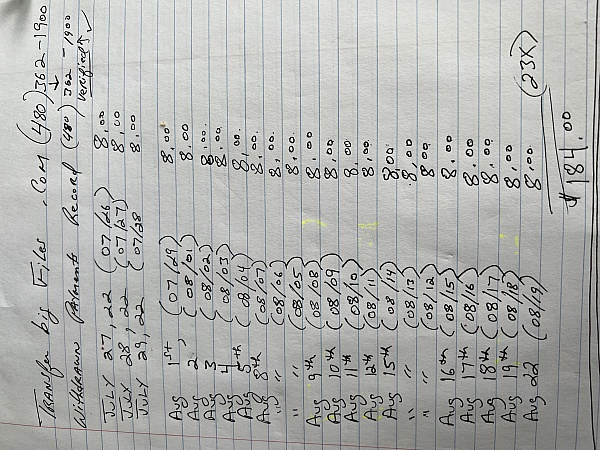 TRANSFER big Files .Com (480)362-1900
Withdrawn Payments Record (480) 362-1900
verified ✓
JULY 27, 22 (07/26) 8.00
JULY 28, 22 (07/27) 8.00
JULY 29, 22 (07/28 8.00
Aug 1st, (07/29) 8.00
Aug 2 (08/01) 8.00
Aug 3 (08/02) 8.00
Aug 4 (08/03) 8.00
Aug 5th (08/04) 8.00
Aug 8th (08/07) 8.00
" " (08/06) 8.00
" " (08/05) 8.00
Aug 9th (08/08) 8.00
Aug 10th (08/09) 8.00
Aug 11th (08/10) 8.00
Aug 12th (08/11) 8.00
Aug 15th (08/14) 8.00
" " (08/13) 8.00
" " (08/12) 8.00
Aug 16th (08/15) 8.00
Aug 17th (08/16) 8.00
Aug 18th (08/17) 8.00
Aug 19th (08/18) 8.00
Aug 22 (08/19) 8.00 (23X)
$184.00